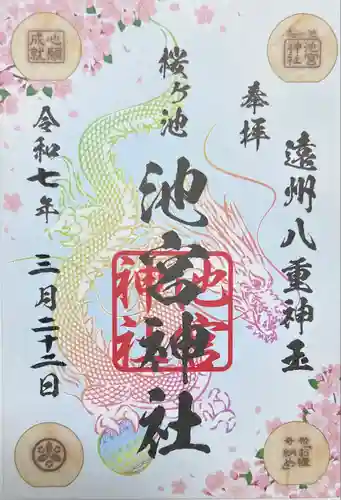 遠州八重神玉
奉拝
桜ケ池
池宮神社
令和七年
三月二十二日
池宮神社
心願成就
池宮神社